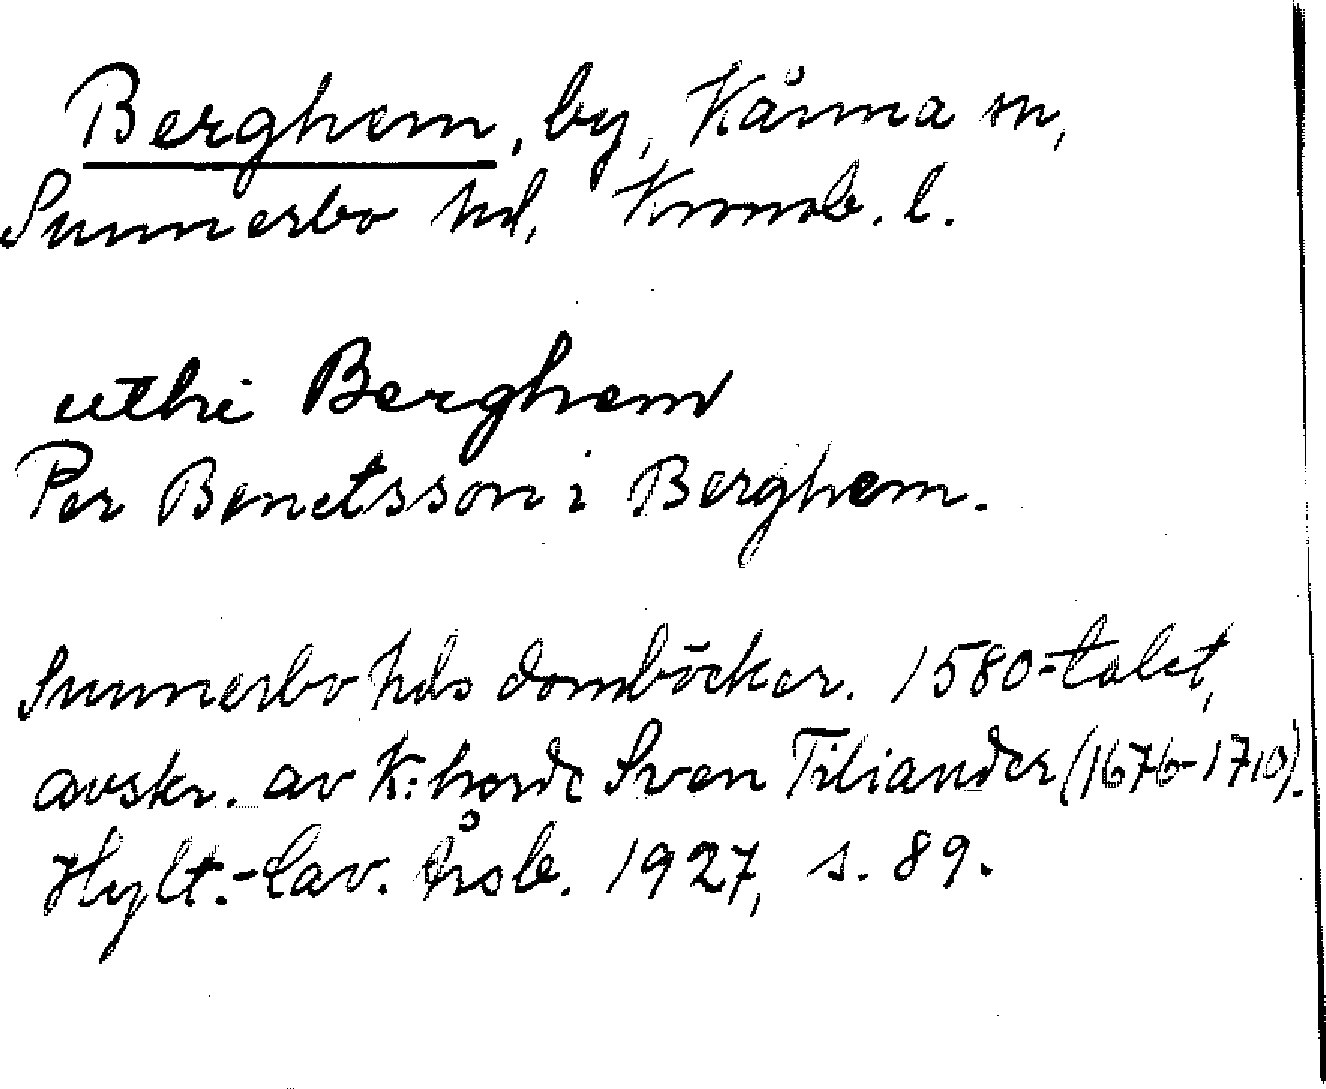 Berghem, by, Kånna sn,
Sunnerbo hd, Kronob. l.
uthi Berghem
Per Benetsson i Berghem.
Sunnerbo hds domböcker. 1580-talet,
avskr. av K:herde Sven Tiliander (1676-1710).
Hylt.-Cav. Årsb. 1927, s. 89.